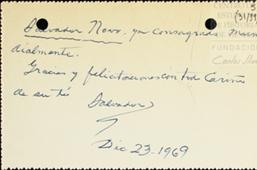 Salvador Novo, ya consagrado mun
dialmente.
Gracias y felicitaciones con tod cariño
de su tío
Salvador
Dic 23-1969
FUNDACIÓN